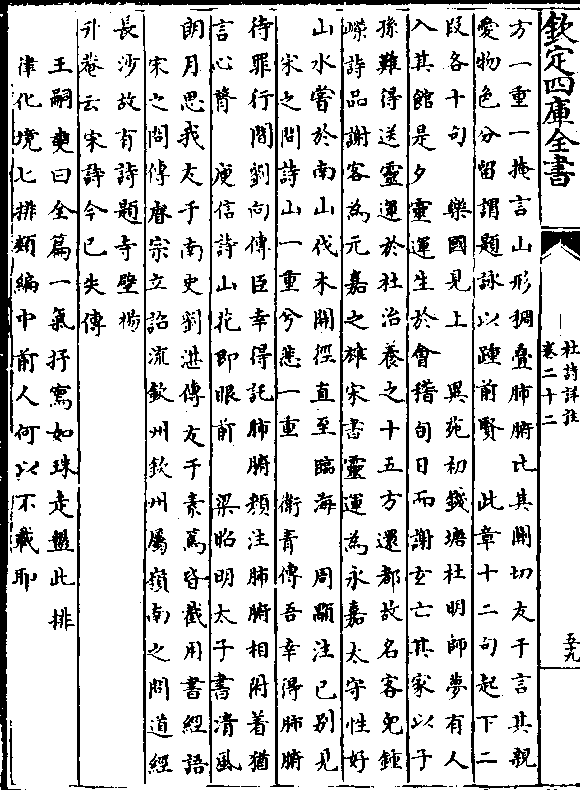 欽定四庫全書
杜詩詳註
卷二十二
五九
方一重一掩言山形稠疊肺腑比其關切友于言其親
愛物色分留謂題詠以踵前賢　此章十二句起下二
段各十句　樂國見上　異苑初錢塘杜明師夢有人
入其館是夕靈運生於會稽旬日而謝玄亡其家以子
孫難得送靈運於杜治養之十五方還都故名客兒鍾
嶸詩品謝客為元嘉之雄宋書靈運為永嘉太守性好
山水嘗於南山伐木開徑直至臨海　周顒注已別見
宋之問詩山一重兮悲一重　衛青傳吾幸得肺腑
待罪行間劉向傳臣幸得託肺腑顏注肺腑相附著猶
言心膂　庾信詩山花即眼前　梁昭明太子書清風
朗月思我友于南史劉湛傳友于素篤皆截用書經語
宋之問傳睿宗立詔流欽州欽州屬嶺南之問道經
長沙故有詩題寺壁楊
升菴云宋詩今已失傳
王嗣奭曰全篇一氣抒寫如珠走盤此排
律化境七排類編中前人何以不載耶